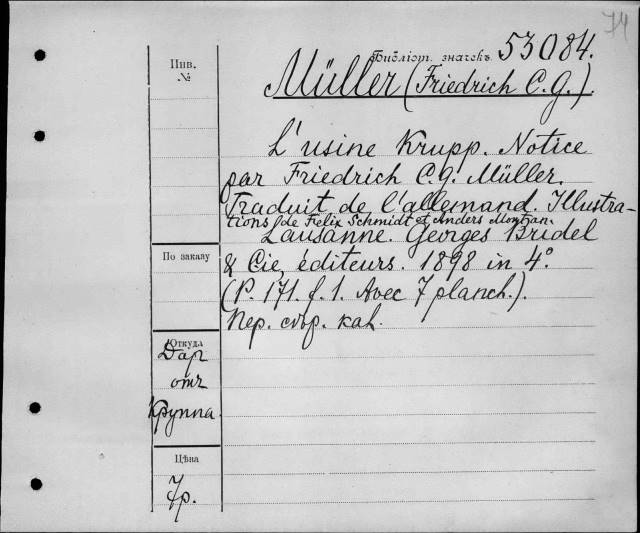 74
Библіот. значекъ 53084.
Müller (Friedrich C. G.).
Инв.
№
L'usine Krupp. Notice
par Friedrich C. G. Müller.
Traduit de l'allemand. Illustra-
tions de Felix Schmidt et Anders Montan.
Lausanne. Georges Bridel
& Cie, éditeurs. 1898 in 4°.
(P. 171. f. 1. Avec 7 planch.).
Пер.
По заказу
Откуда
Даръ
отъ
Круппа.
Цѣна
7р.